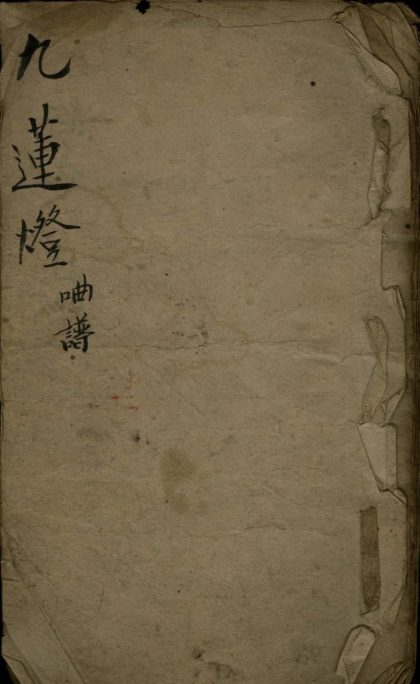 九蓮燈
呭譜